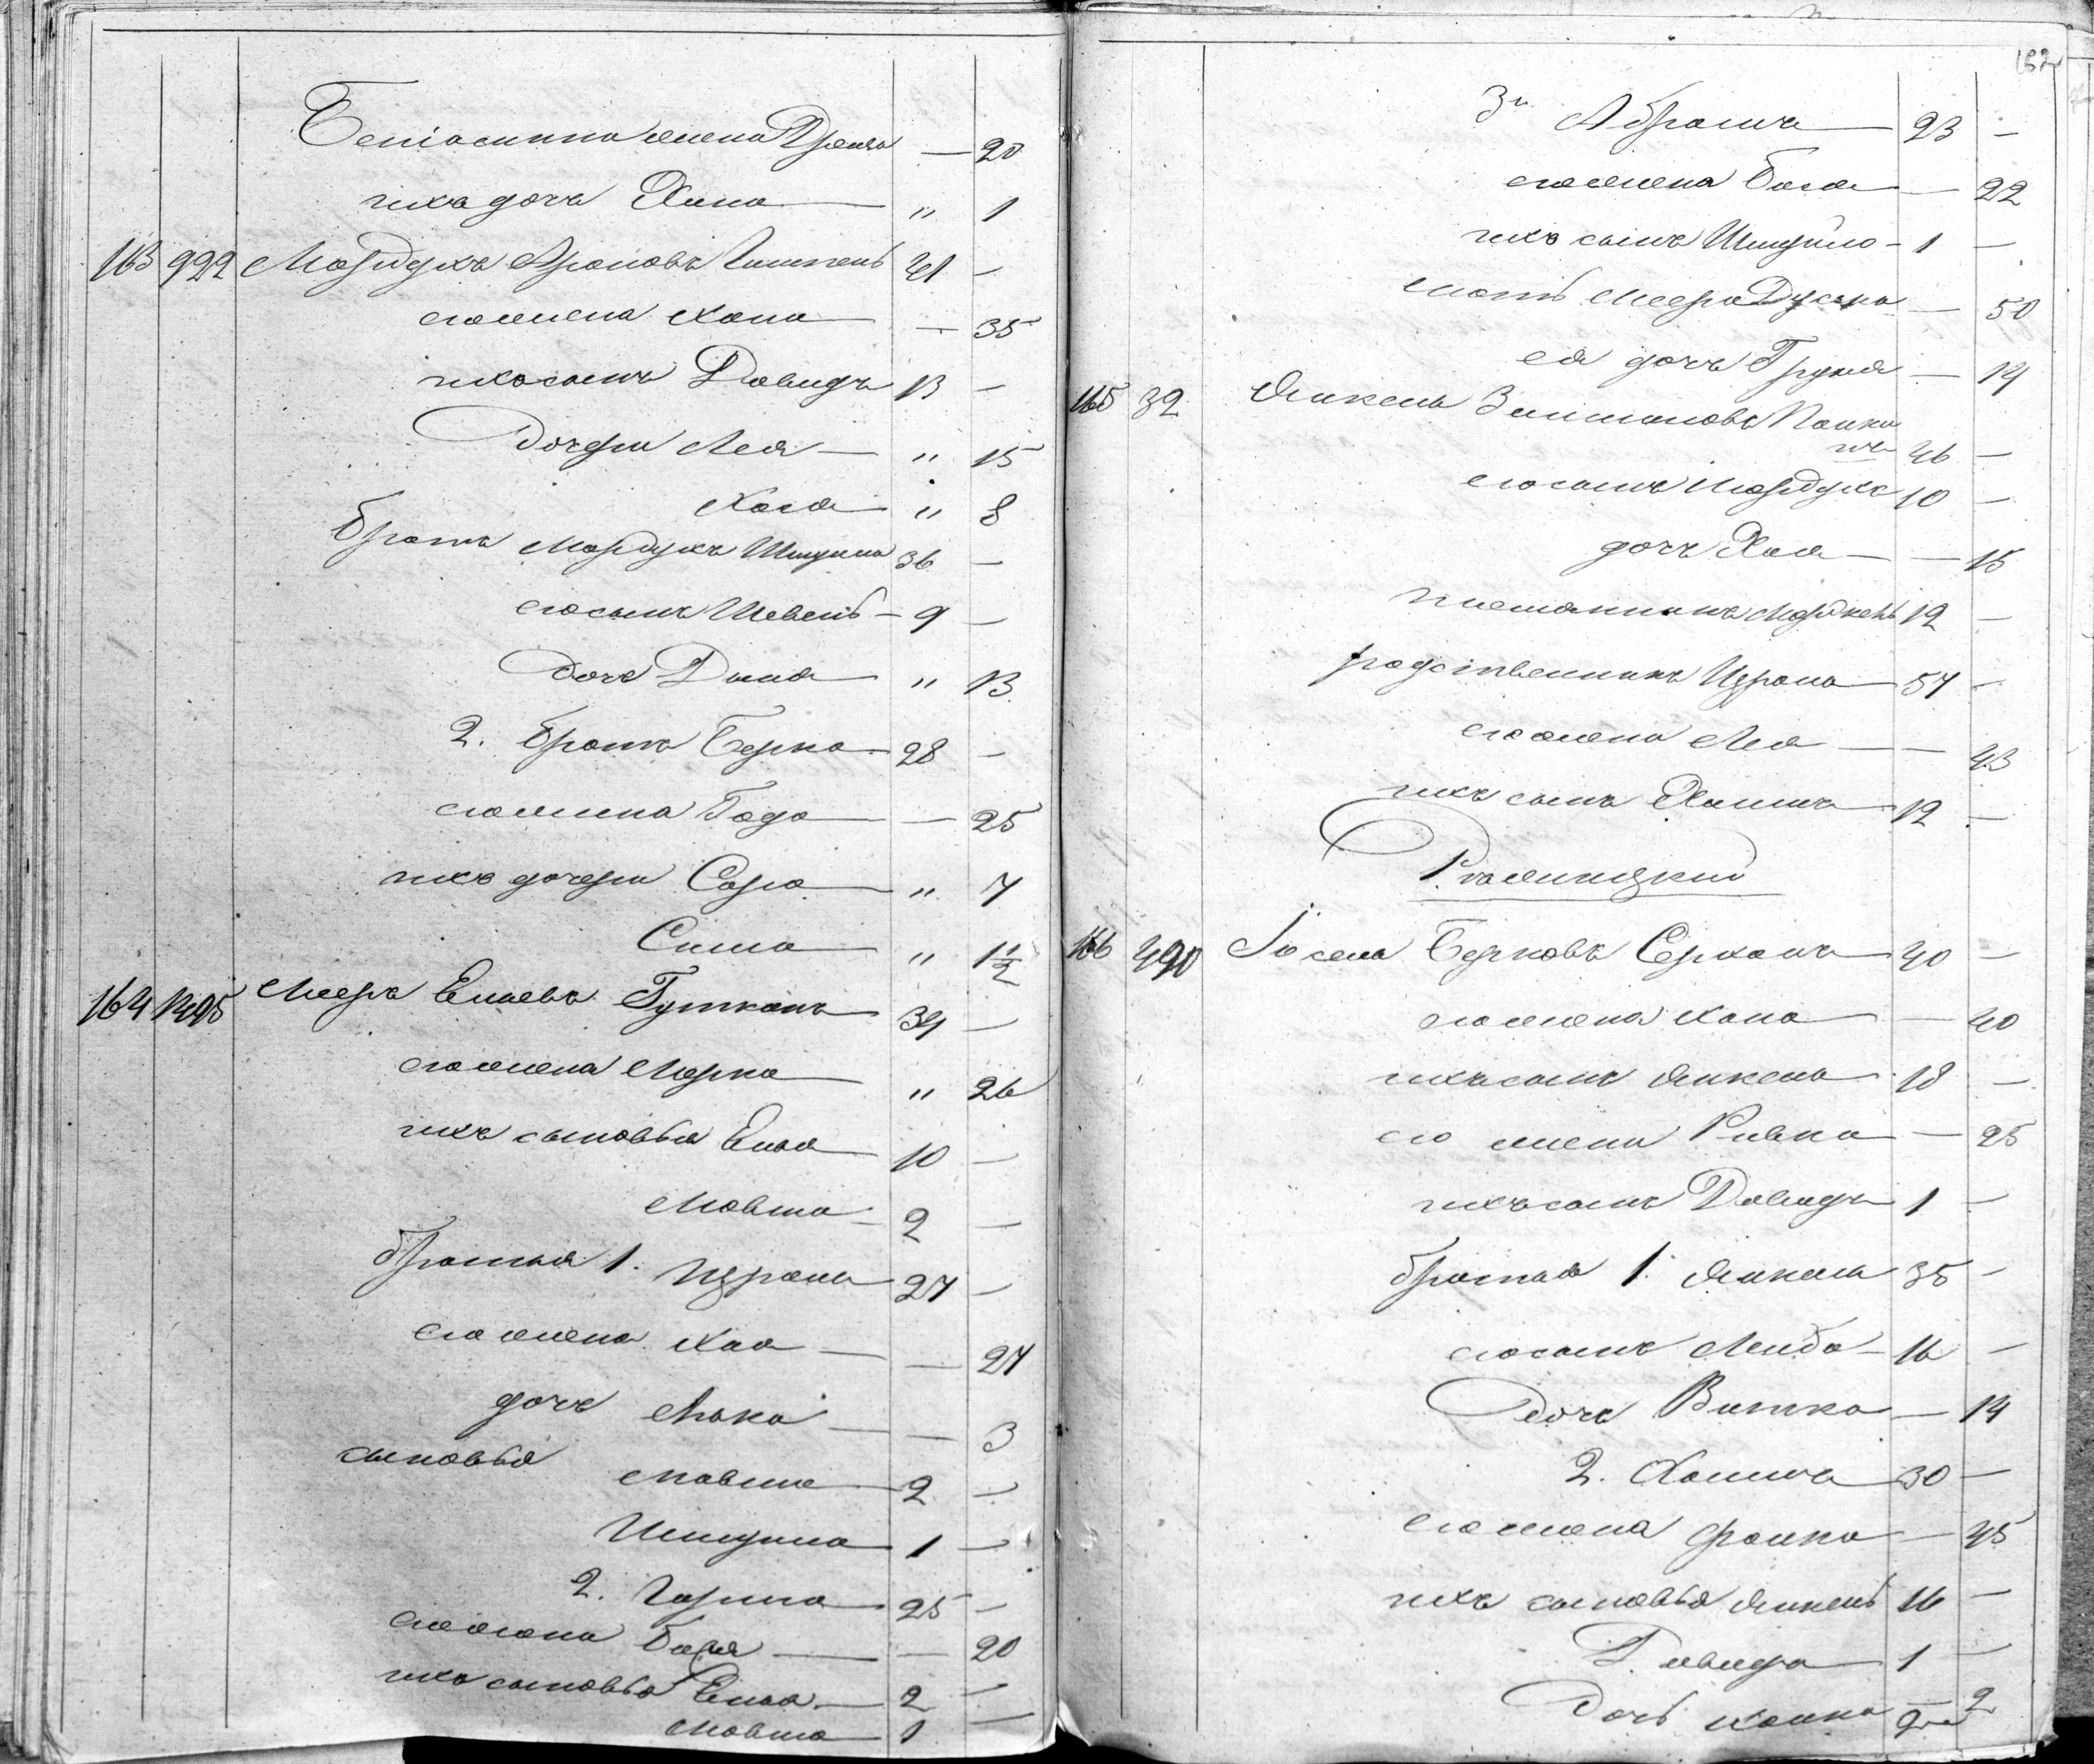 Беніамина жена Двейра — 20
ихъ дочь Хана " 1
163 922 Мордухъ Ароновъ 41 —
его жена Хана — 35
ихъ сынъ Давидъ 13 —
Дочери Лея " 15
Хася " 8
братъ Мордуха Шмуйла 36 —
его сынъ Шевель 9 —
Дочь Дина " 13
2. братъ Берка 28 —
его жена Года — 25
ихъ дочери Сара " 7
Сима " 1 1/2
164 1495 Мееръ Ельевъ Гуткинъ 34 —
его жена Мерка " 26
ихъ сыновья Елья 10 —
Мовша 2 —
братья 1. Израиль 27 —
его жена Хая — 27
дочь — 3
сыновья Мовша 2 —
Шмуйла 1 —
2. 25 —
его жена Бася — 20
ихъ сыновья Елья 2 —
Мовша 1 —
162
3й Абрамъ 23 —
его жена Бася — 22
ихъ сынъ Шмуйло 1 —
мать Меера Дуська — 50
ея дочь Груня — 14
165 32 Янкель Залмановъ 46 —
его сынъ Мордухъ 10 —
дочь Хая — 15
племянникъ 12 —
родственникъ Израиль 57 —
его жена Лея — 43
ихъ сынъ Хаимъ 12 —
166 490 Іосель Берковъ 40 —
его жена Хана — 40
ихъ сынъ Янкель 18 —
его жена Ривка — 25
ихъ сынъ Давидъ 1 —
братья 1. Янкель 35 —
его сынъ Лейба 16 —
Дочь Витка — 14
2. Хаимъ 30 —
его жена Фанка — 45
ихъ сыновья Янкель 16 —
Давидъ 1 —
Дочь Ханка — 2